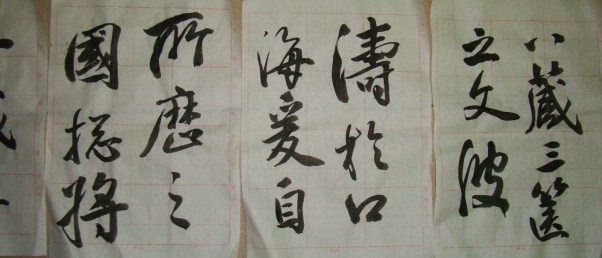 八藏三篋
之文波
濤於口
海爰自
所歷之
國捴將